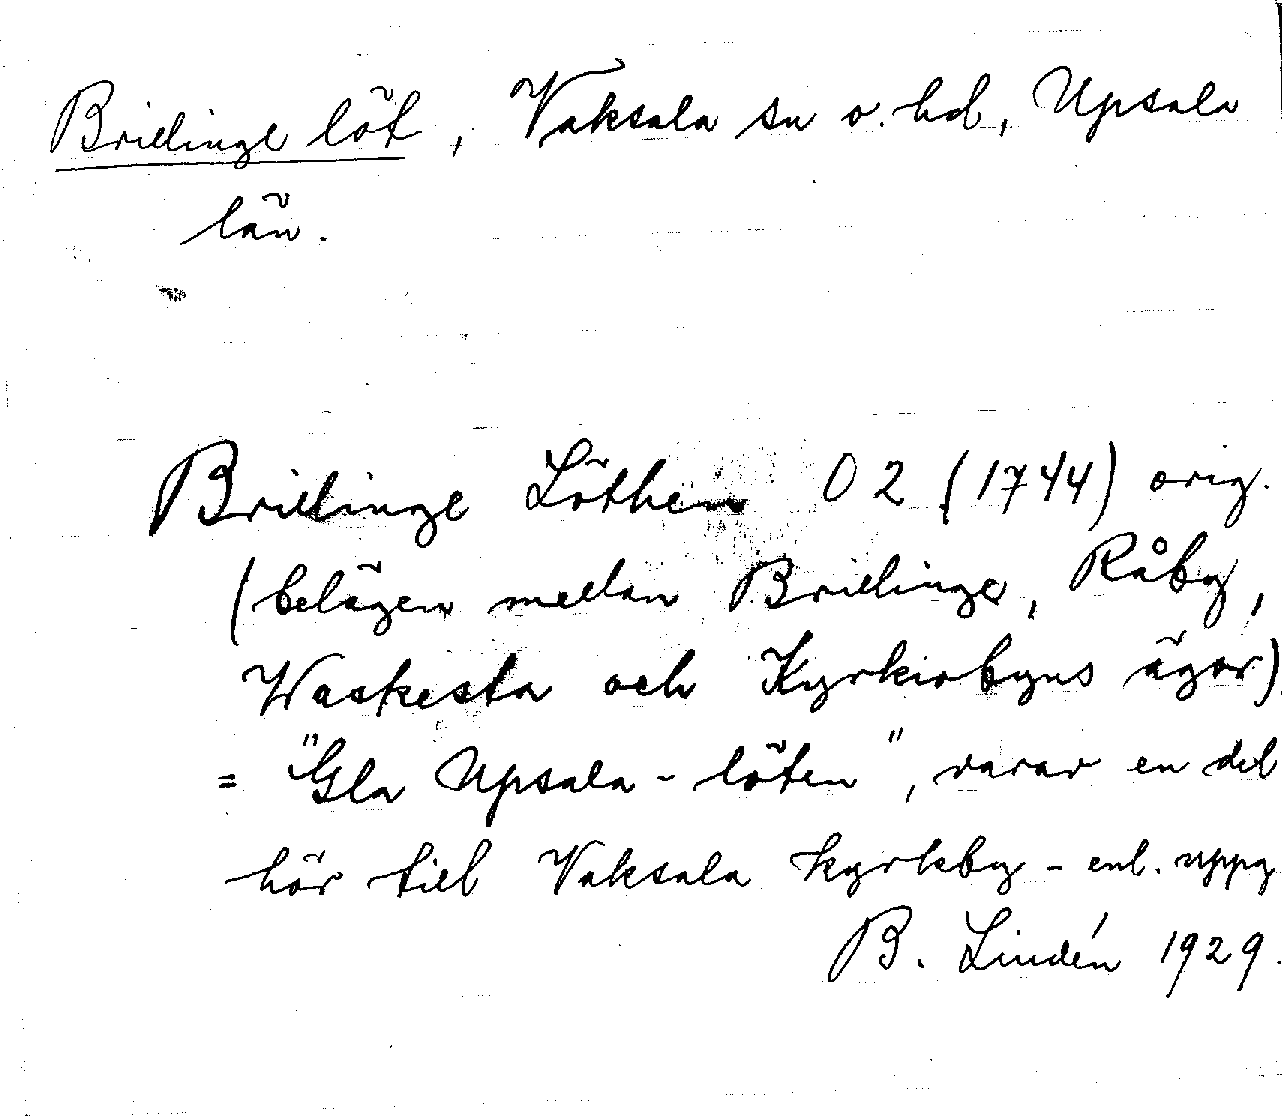 Brillinge löt, Vaksala sn o. hd, Upsala
län.
Brillinge Löthen O 2 (1744) orig.
(belägen mellan Brillinge, Råby,
Waskesta och Kyrkiobyns ägor)
= "Gla Upsala-löten", varav en del
hör till Vaksala kyrkby - enl. uppg
B. Lindén 1929.